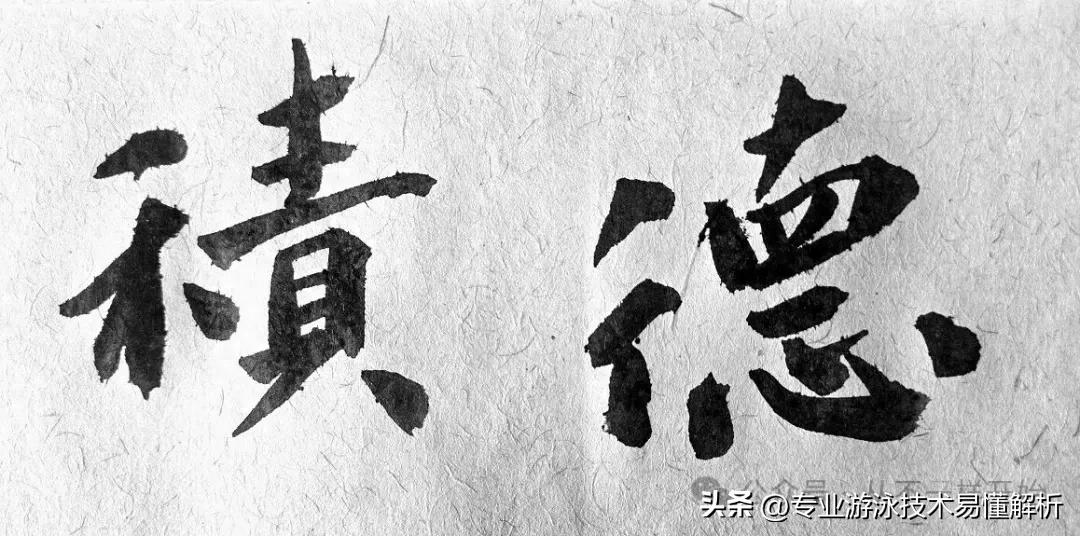 積德
头条 @专业游泳技术易懂解析